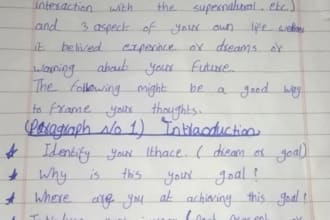 interaction with the supernatural. etc.)
and 3 aspect of your own life
it belived experince or dreams or
warning about your Future.
The following might be a good way
to Frame your thoughts.
(Paragraph No 1) Intraoduction
★ Identify your Ithace. (dream or goal)
★ Why is this your goal!
★ Where are you at achieving this goal!